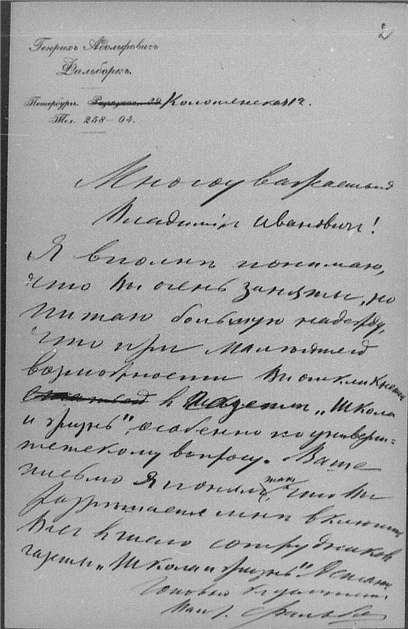 2
Генрихъ Адольфовичъ
Фальборкъ.
Петербургъ. Коломенская 1 г.
Тел. 238—04.
Многоуважаемый
Владиміръ Ивановичъ!
Я вполнѣ понимаю,
что Вы очень заняты, но
питаю большую надежду,
что при малѣйшей
возможности Вы откликнетесь
къ газетѣ „Школа
и жизнь", особенно по универси-
тетскому вопросу. Ваше
письмо я понялъ такъ, что Вы
разрѣшаете мнѣ включить
Васъ въ число сотрудниковъ
газеты „Школа и жизнь".